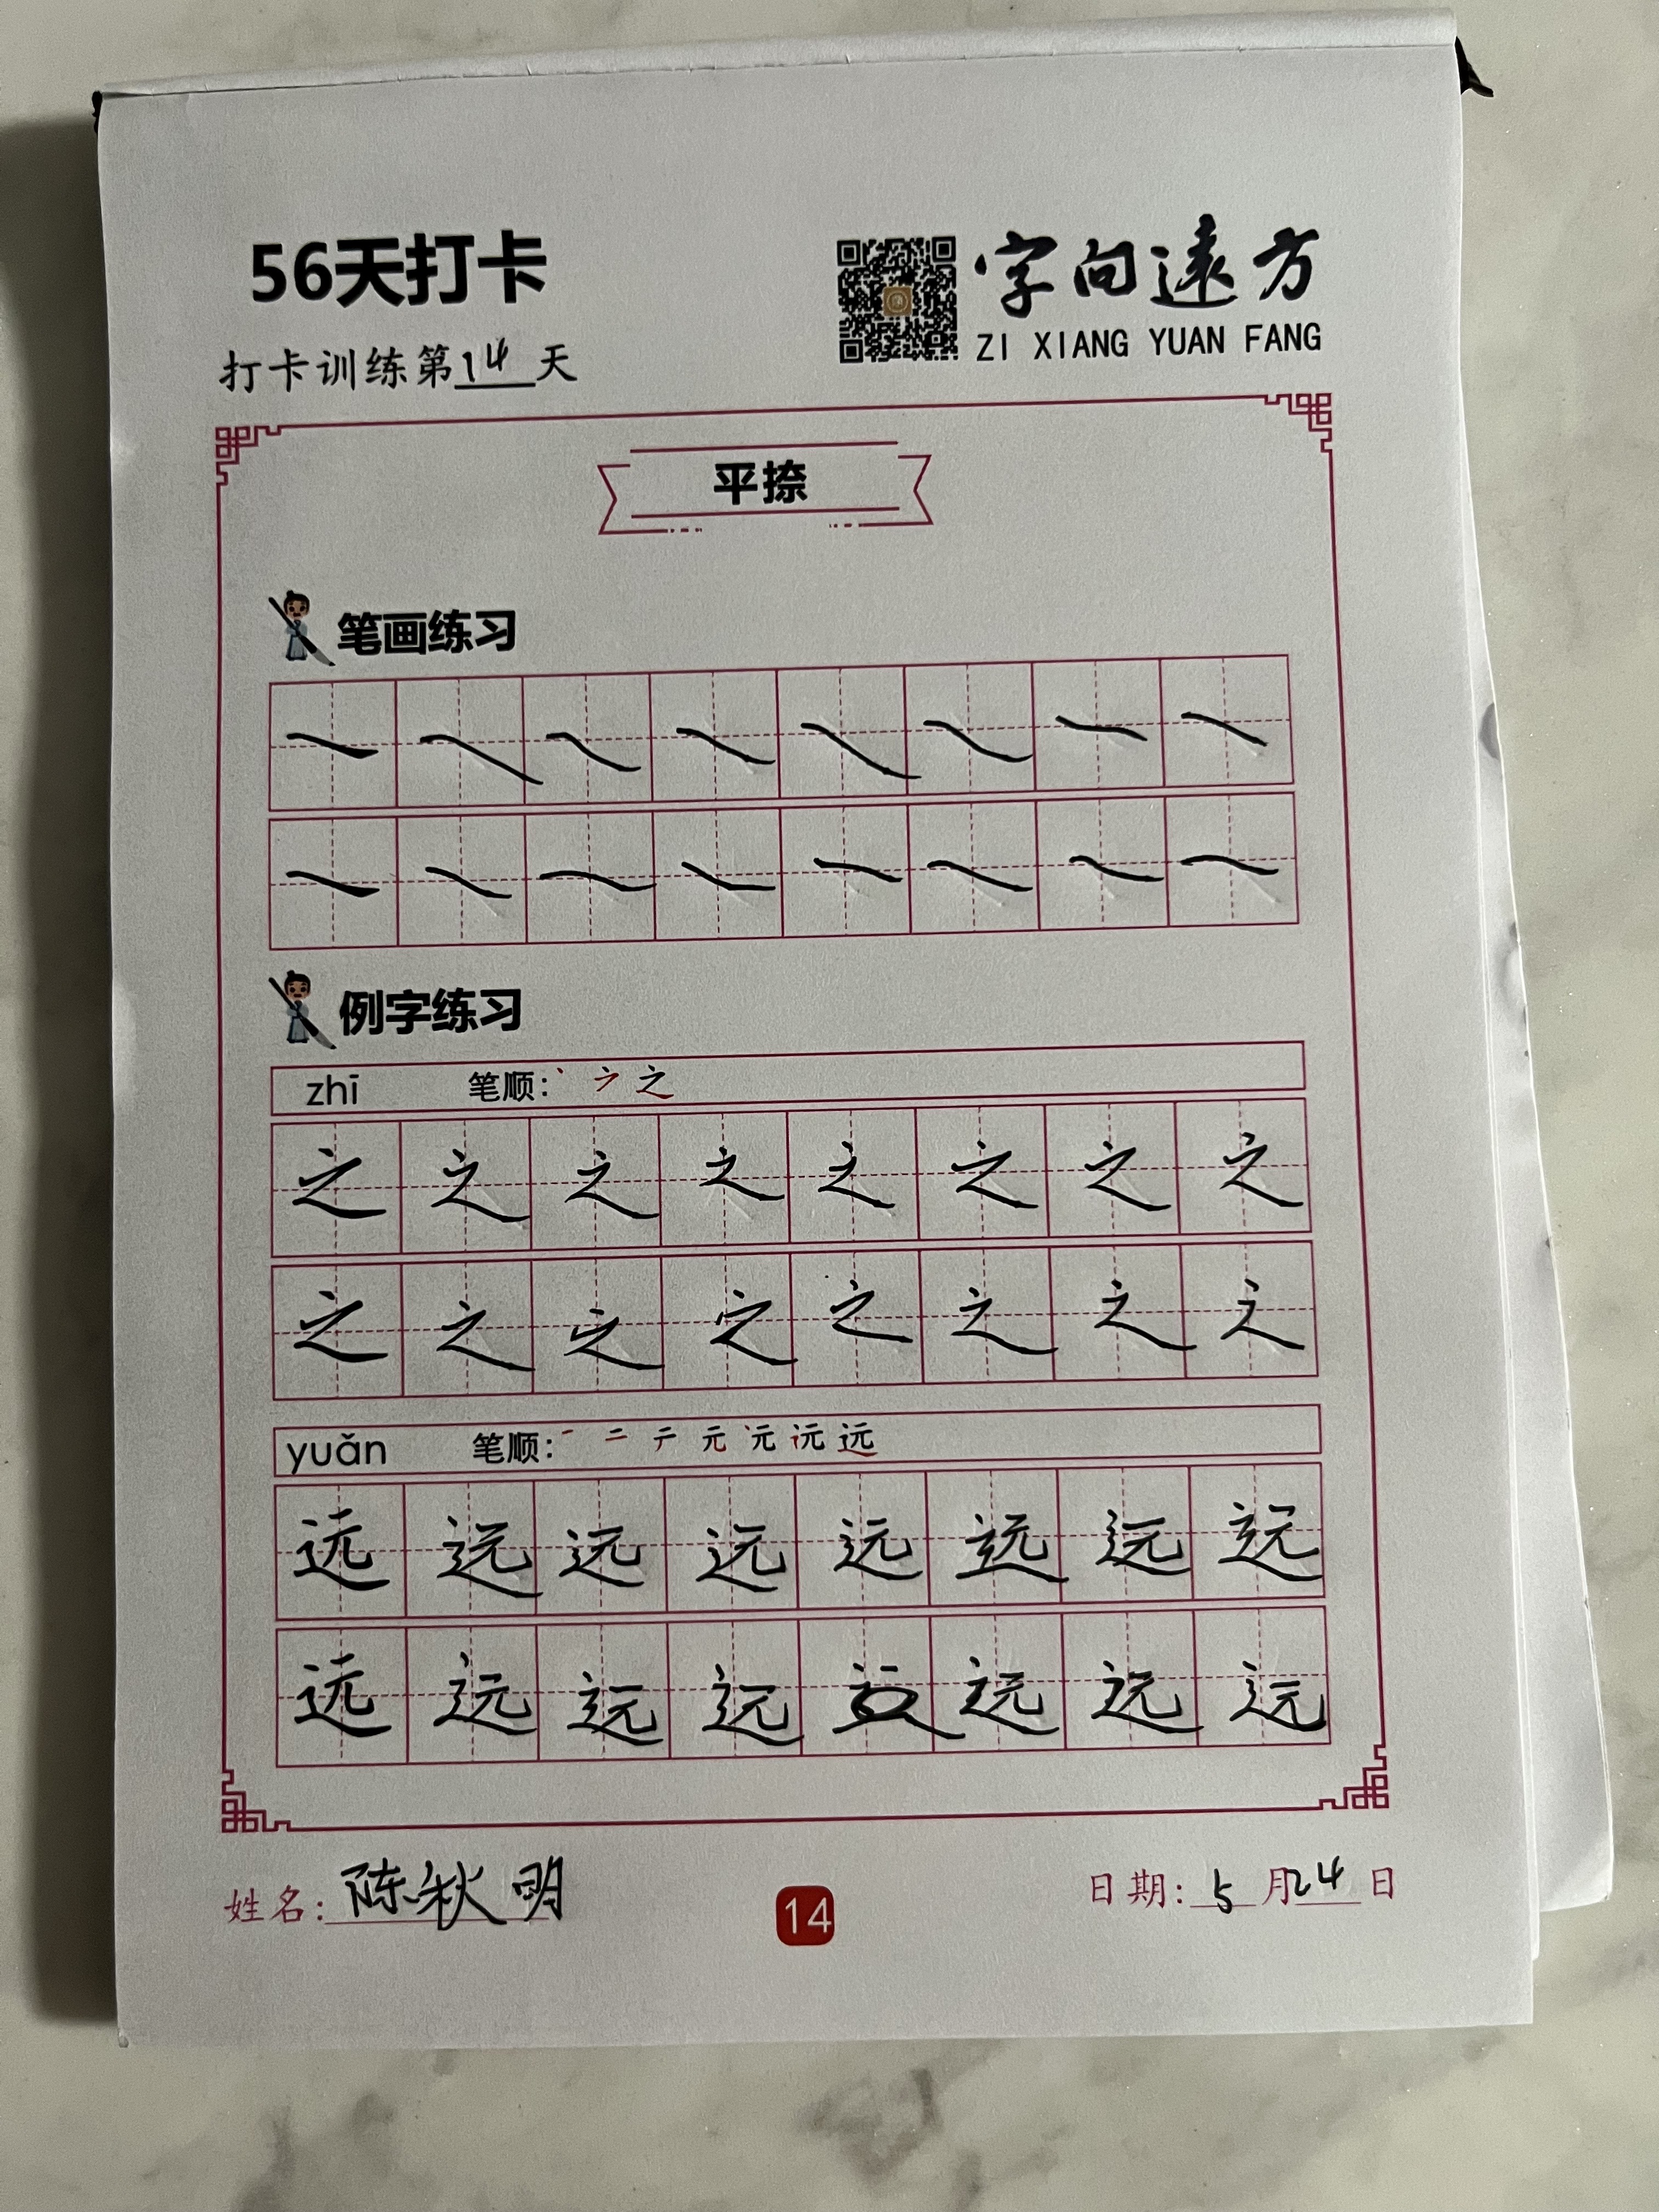 56天打卡
字向遠方
ZI XIANG YUAN FANG
打卡训练第14天
平捺
笔画练习
例字练习
zhī 笔顺: 丶 之
之 之 之 之 之 之 之 之
之 之 之 之 之 之 之 之
yuǎn 笔顺: 一 二 テ 元 远
远 远 远 远 远 远 远 远
远 远 远 远 远 远 远
姓名: 陈秋明
14
日期: 5月24日